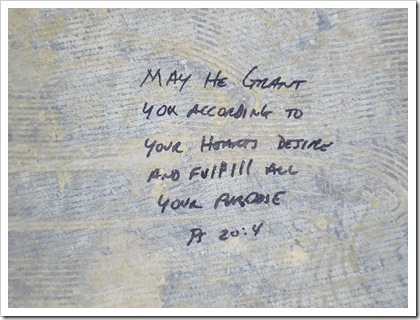 MAY HE GRANT
YOU ACCORDING TO
YOUR HEARTS DESIRE
AND FULFILL ALL
YOUR PURPOSE
Ps 20:4